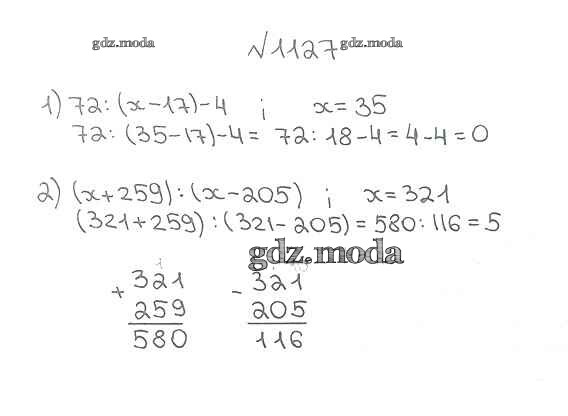 gdz.moda
№1127
gdz.moda
1) 72 : (x-17)-4 ; x = 35
72 : (35-17)-4 = 72 : 18-4 = 4-4 = 0
2) (x+259) : (x-205) ; x = 321
(321+259) : (321-205) = 580 : 116 = 5
gdz.moda
1
+ 321
259
580
- 321
205
116